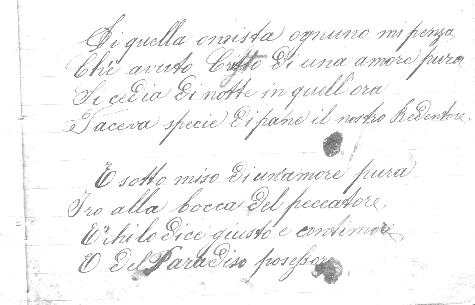 Di quella onnista ognuno mi penza
Che avuto Cristo di una amore pura
Si cedia di notte in quell'ora
Faceva specie di pane il nostro Redentore.
E sotto miso di un amore pura
Iro alla bocca del peccatore,
E chi lo dice giusto e continuo
E del Paradiso posessore